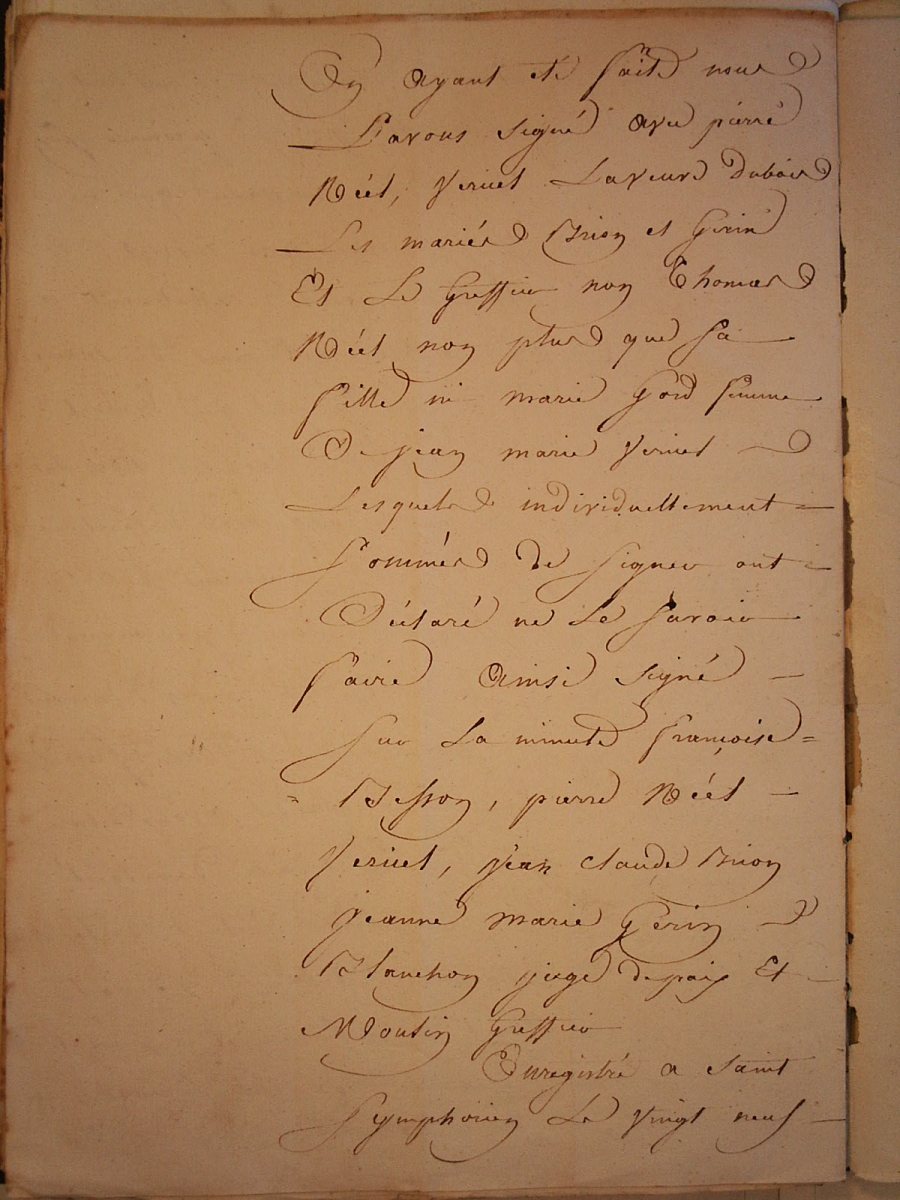 En ayant été faite nous
L'avons signé avec pierre
Néel, Veruet Laveure dubois
Les mariés Brion et Gerin
Et Le Greffier non Thomas
Néel non plus que sa
fille ni marie Gord femme
De jean marie Veruet
Lesquels individuellement
sommés de signer ont
Déclaré ne Le savoir
faire Ainsi signé
sur La minute françoise
Besson, pierre Néel
Veruet, jean claude Brion
jeanne marie Gerin
Blanchon juge de paix Et
Moulin Greffier
Enregistré a saint
symphorien Le vingt neuf